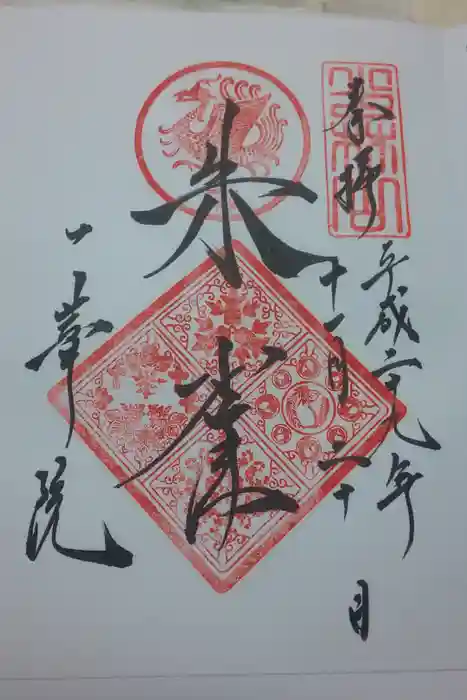 奉拝
平成二十九年
十一月二十 日
朱雀
一華院